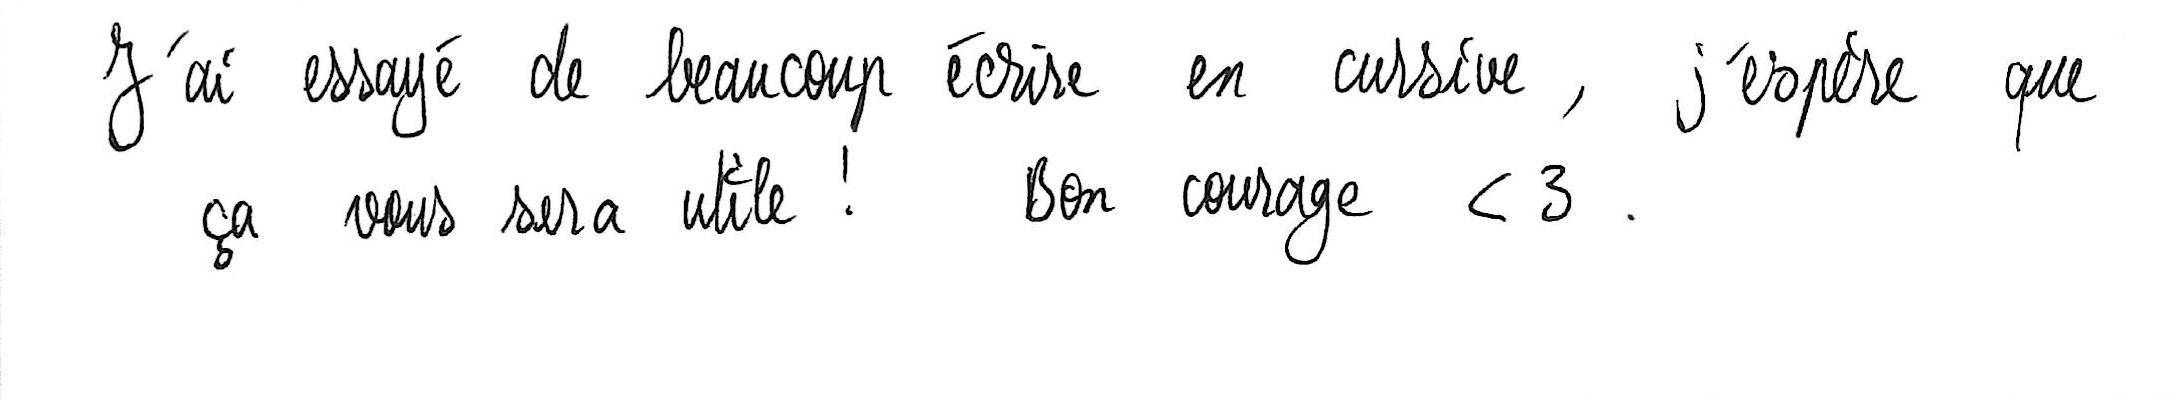 J'ai essayé de beaucoup écrire en cursive, j'espère que
ça vous sera utile ! Bon courage <3.